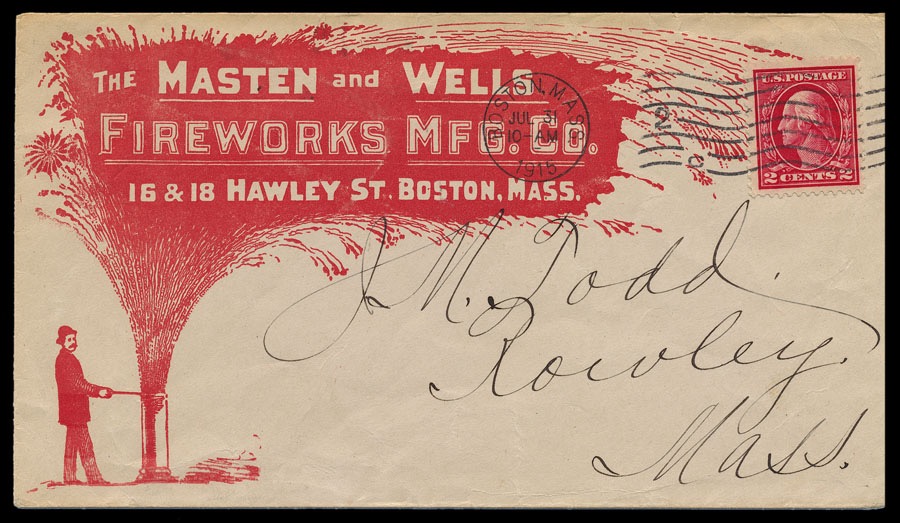 THE MASTEN and WELLS
FIREWORKS MFG. CO.
16 & 18 HAWLEY ST. BOSTON, MASS.
BOSTON, MASS
JUL 31
10-AM
1915
U.S. POSTAGE
2 CENTS 2
J. M. Todd.
Rowley.
Mass.